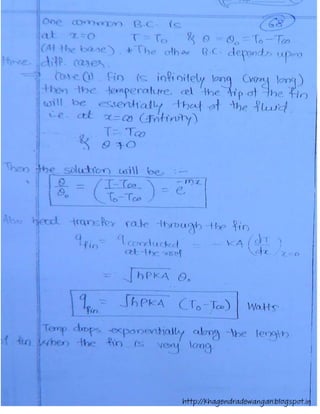 68
One common B.C. is
at x=0 T = T₀ & θ = θ₀ = T₀ - T∞
(At the base). * The other B.C. depends upon
three diff. cases.
Case (1). Fin is infinitely long (very long)
then the temperature at the tip of the fin
will be essentially that of the fluid.
i.e. at x = ∞ (Infinity)
T = T∞
& θ → 0
Then the solution will be :-
θ/θ₀ = (T - T∞ / T₀ - T∞) = e^-mx
Also heat transfer rate through the fin
q fin = q conducted at the root = - kA (dT/dx) x=0
= √hPkA θ₀
q fin = √hPkA (T₀ - T∞) Watts
Temp drops exponentially along the length
of fin when the fin is very long
http://khagendradewangan.blogspot.in